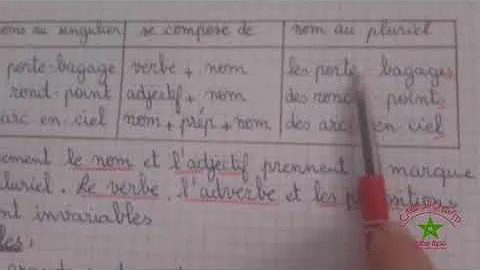 noms au singulier se compose de nom au pluriel
porte-bagage verbe + nom les porte-bagages
rond-point adjectif + nom des ronds-points
arc en ciel nom + prép + nom des arcs en ciel
le nom et l'adjectif prennent marque
pluriel. Le verbe, l'adverbe et les
nt invariables
les: